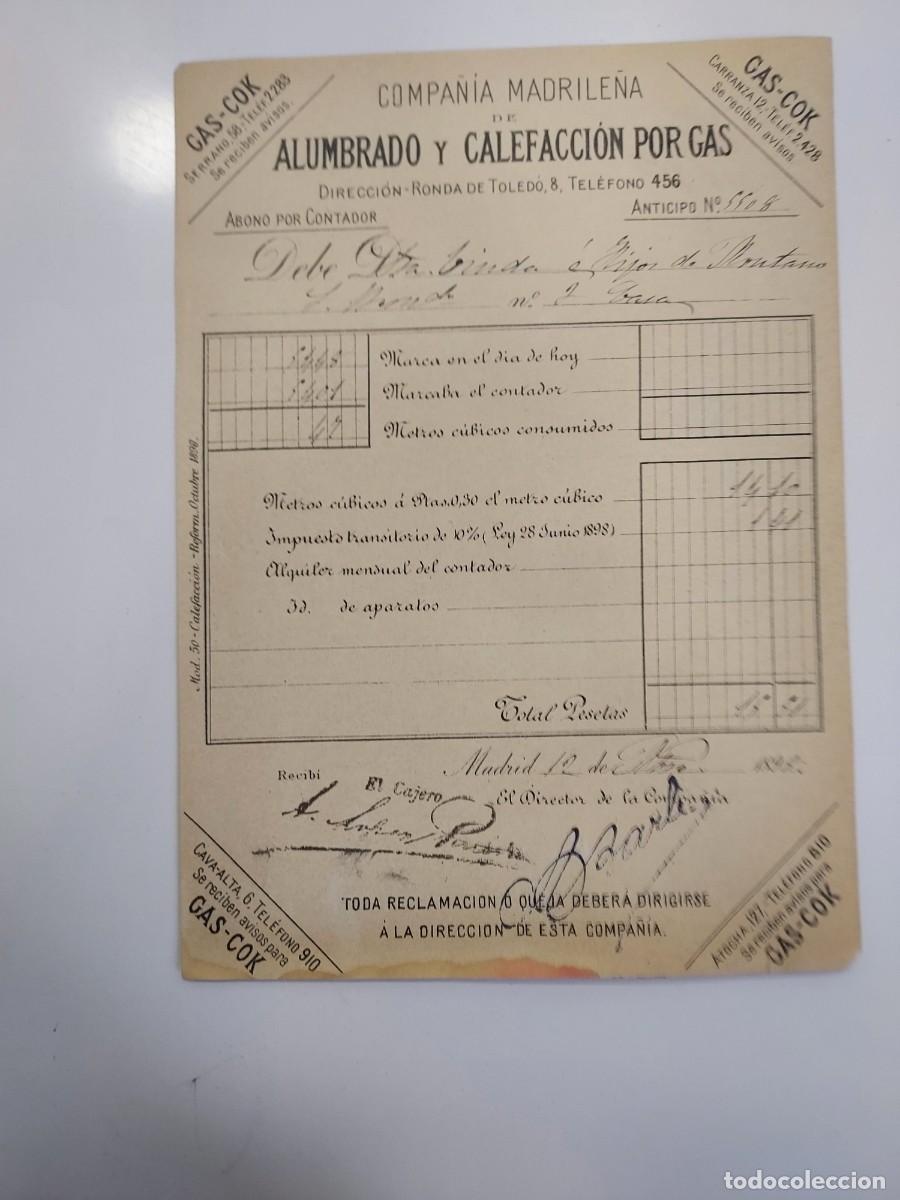 GAS-COK
SERRANO, 58.-TELÉF. 2.283
Se reciben avisos.
GAS-COK
CARRANZA 12.-TELÉF 2.428
Se reciben avisos
COMPAÑÍA MADRILEÑA
DE
ALUMBRADO Y CALEFACCIÓN POR GAS
DIRECCIÓN-RONDA DE TOLEDO, 8, TELÉFONO 456
ABONO POR CONTADOR
ANTICIPO Nº 5508
Debe Dta. Viuda é Hijos de Montano
nº 2 Casa
5448 Marca en el día de hoy
5401 Marcaba el contador
47 Metros cúbicos consumidos
Metros cúbicos á Ptas. 0,30 el metro cúbico 14 10
Impuesto transitorio de 10% (Ley 28 Junio 1898) 1 41
Alquiler mensual del contador
Id. de aparatos
Total Pesetas 15 51
Mod. 50-Calefacción-Reform. Octubre 1898.
Madrid 12 de Nov. 1898.
Recibí
El Cajero
El Director de la Compañía
TODA RECLAMACION O QUEJA DEBERÁ DIRIGIRSE
Á LA DIRECCION DE ESTA COMPAÑÍA.
CAVA-ALTA, 6, TELÉFONO 910
Se reciben avisos para
GAS-COK
ATOCHA, 127, TELÉFONO 810
Se reciben avisos para
GAS-COK
todocoleccion